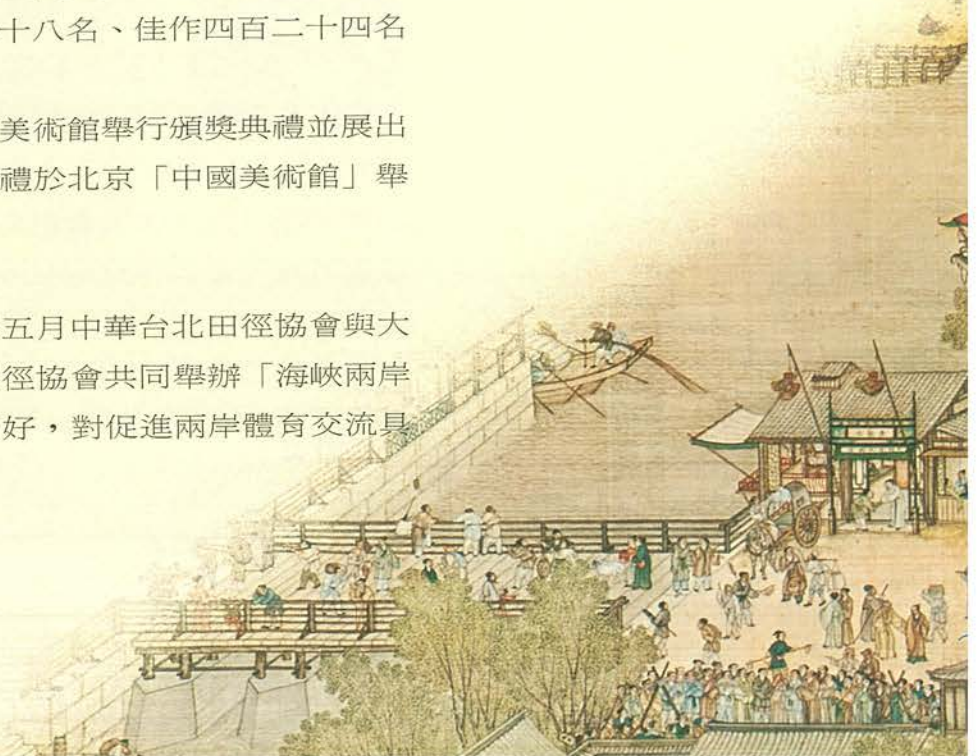 十八名、佳作四百二十四名
美術館舉行頒獎典禮並展出
禮於北京「中國美術館」舉
五月中華台北田徑協會與大
徑協會共同舉辦「海峽兩岸
好，對促進兩岸體育交流具